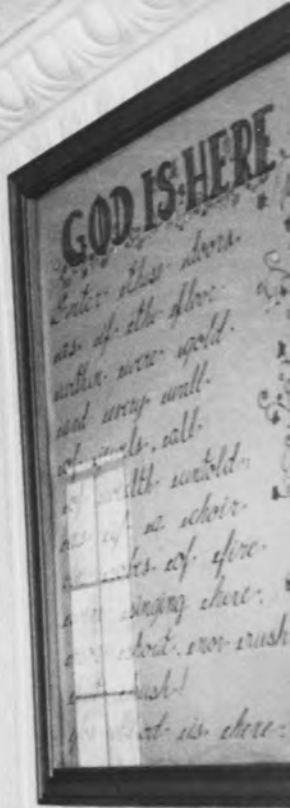 GOD IS HERE
Enter these doors
as if the floor
within were gold
and every wall
of jewels, all
of wealth untold
as if a choir
in robes of fire
were singing here,
nor shout, nor rush
but hush!
for God is here